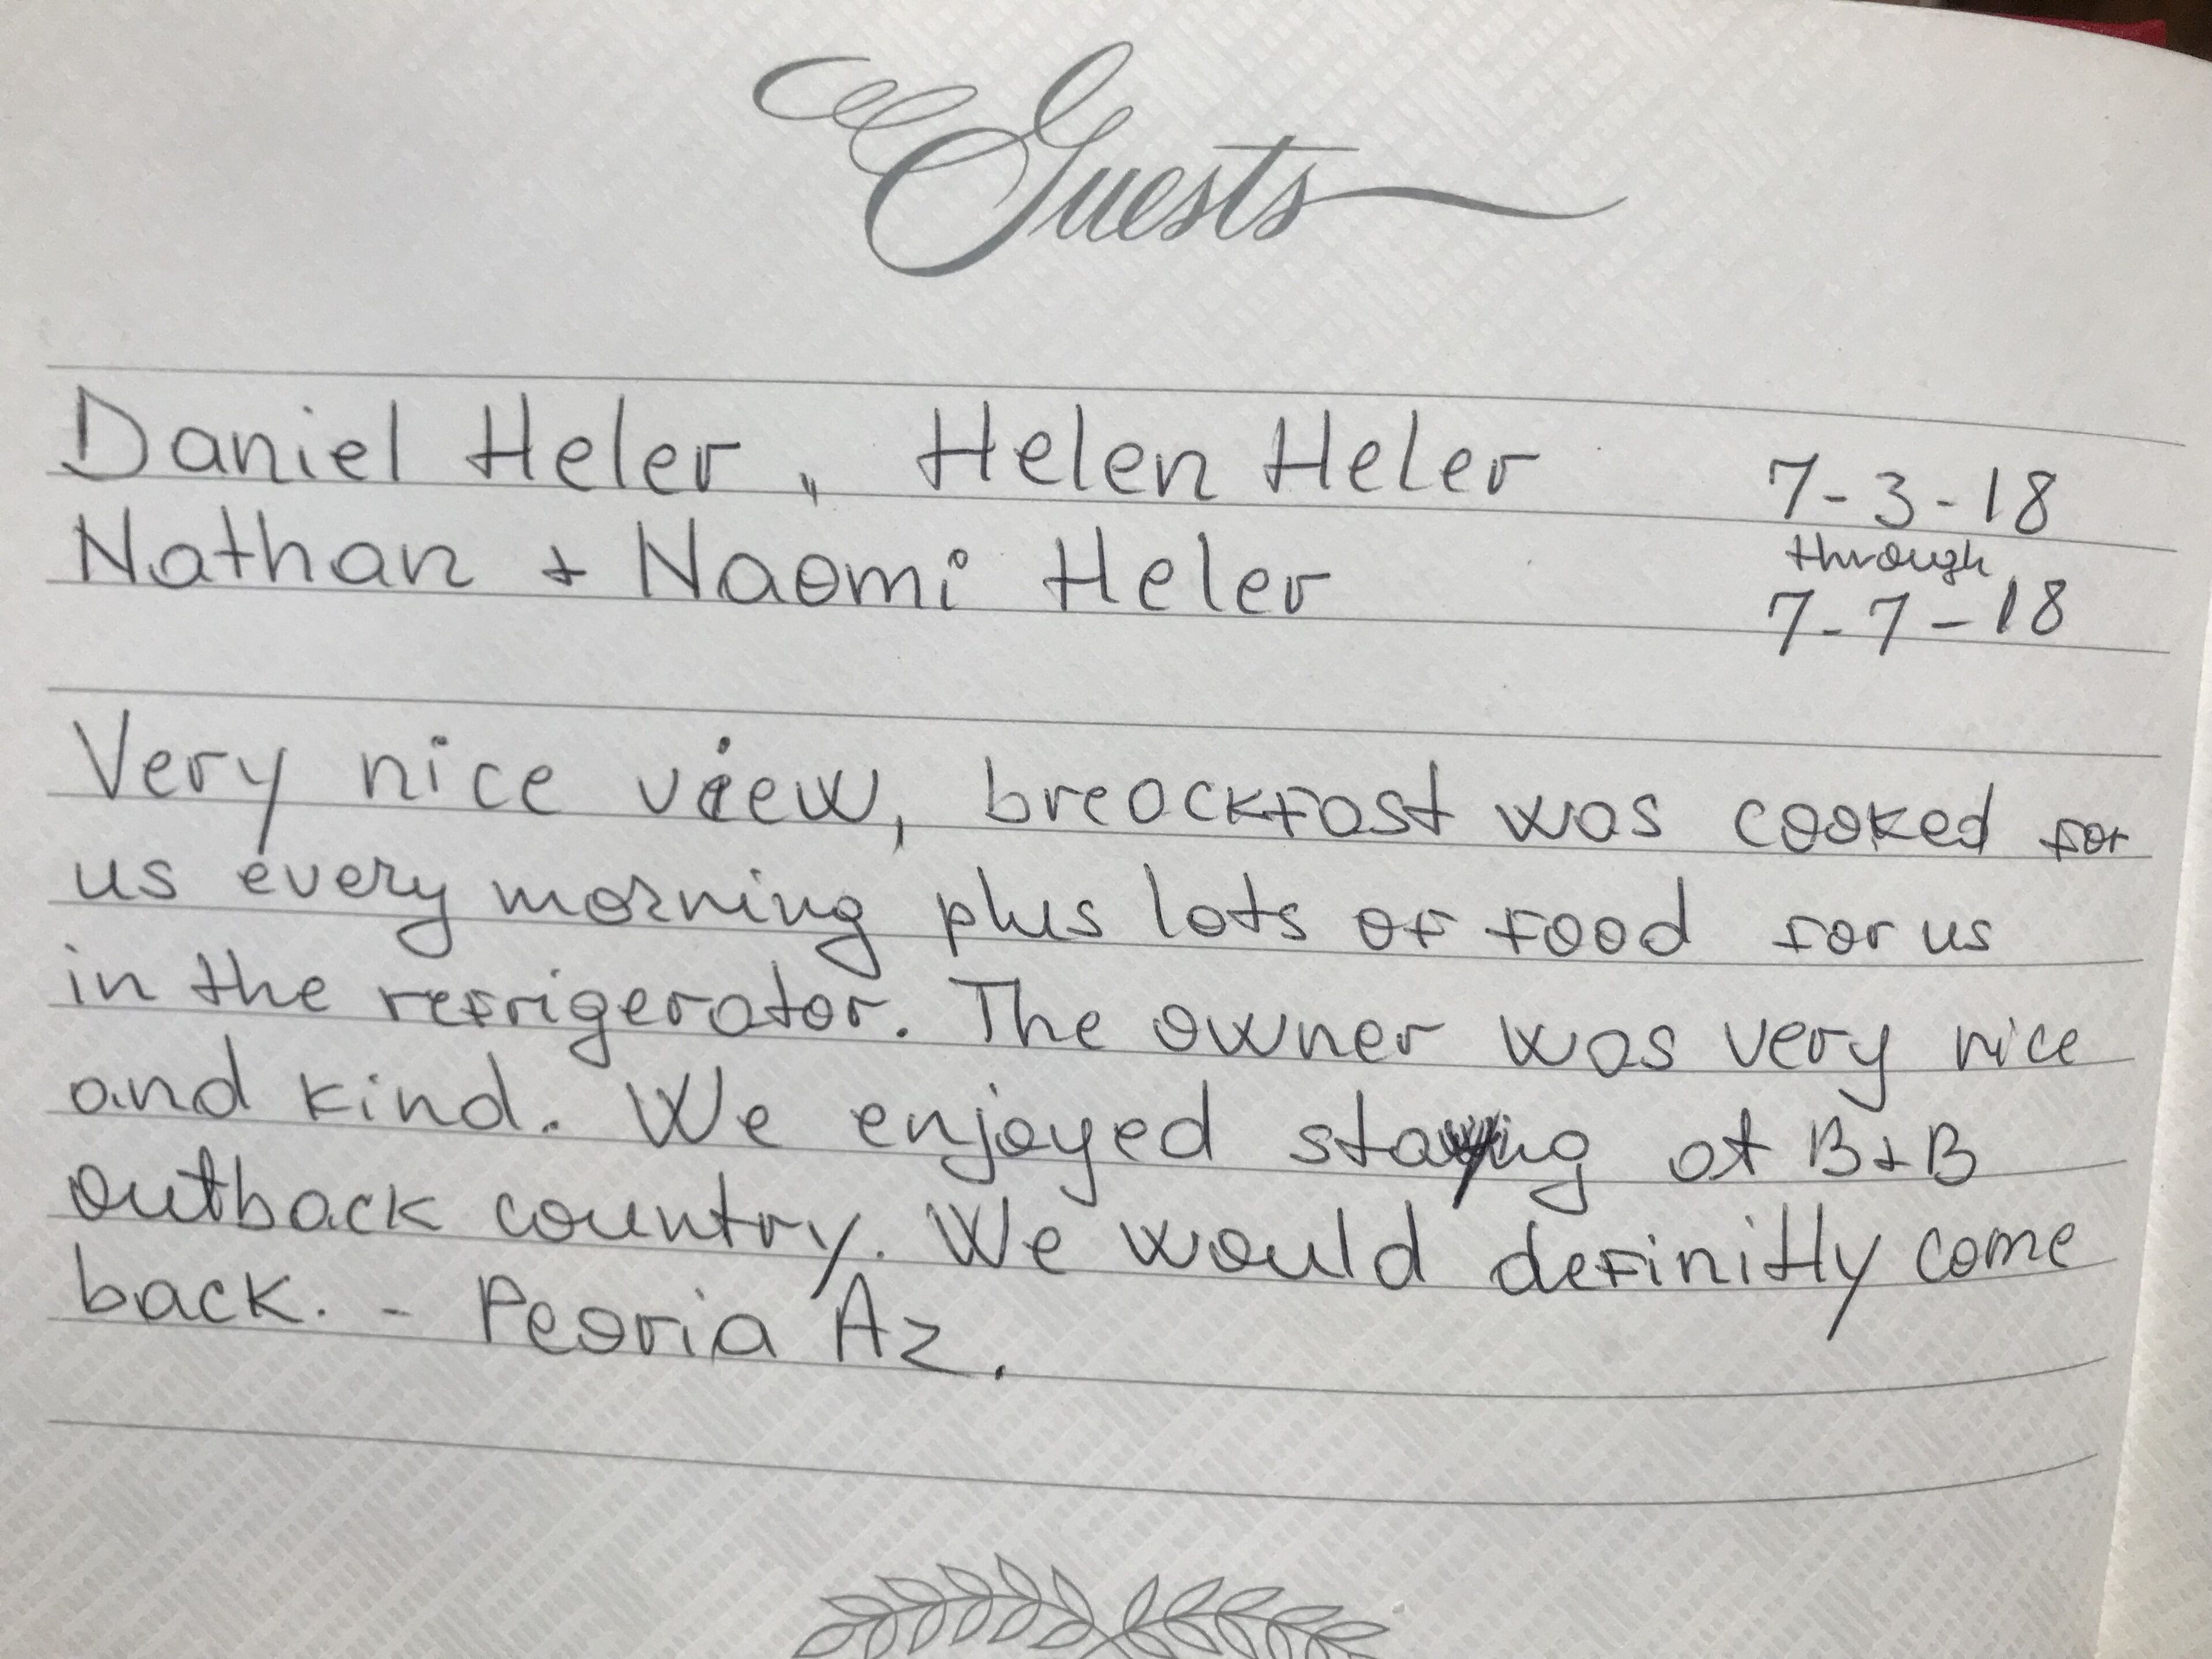 Guests
Daniel Heler, Helen Heler 7-3-18
through
Nathan + Naomi Heler 7-7-18
Very nice view, breackfast was cooked for
us every morning plus lots of food for us
in the refrigerator. The owner was very nice
and kind. We enjoyed staying at B+B
outback country. We would definitly come
back. - Peoria Az.